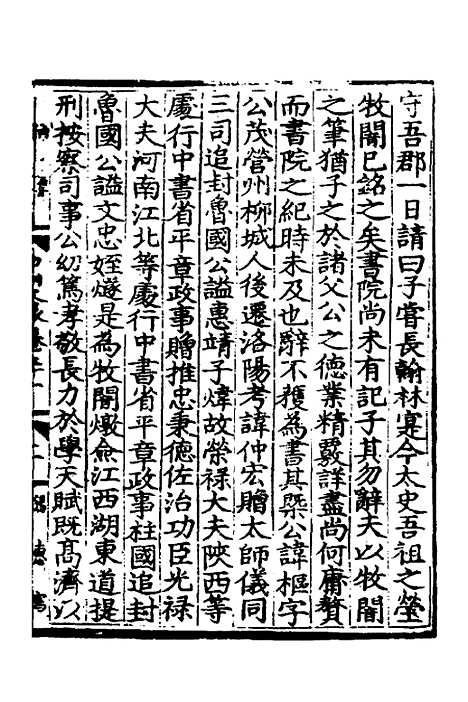 守吾郡一日請曰子嘗長翰林寔今太史吾祖之塋
牧闇已銘之矣書院尚未有記子其勿辭夫以牧闇
之筆猶子之於諸父公之德業精覈詳盡尚何庸贅
而書院之紀時未及也辭不獲為書其槩公諱樞字
公茂營州柳城人後遷洛陽考諱仲宏贈太師儀同
三司追封魯國公謚惠靖子煒故榮禄大夫陝西等
處行中書省平章政事贈推忠秉德佐治功臣光禄
大夫河南江北等處行中書省平章政事柱國追封
魯國公謚文忠姪燧是為牧闇燉僉江西湖東道提
刑按察司事公幼篤孝敬長力於學天賦既髙濟以